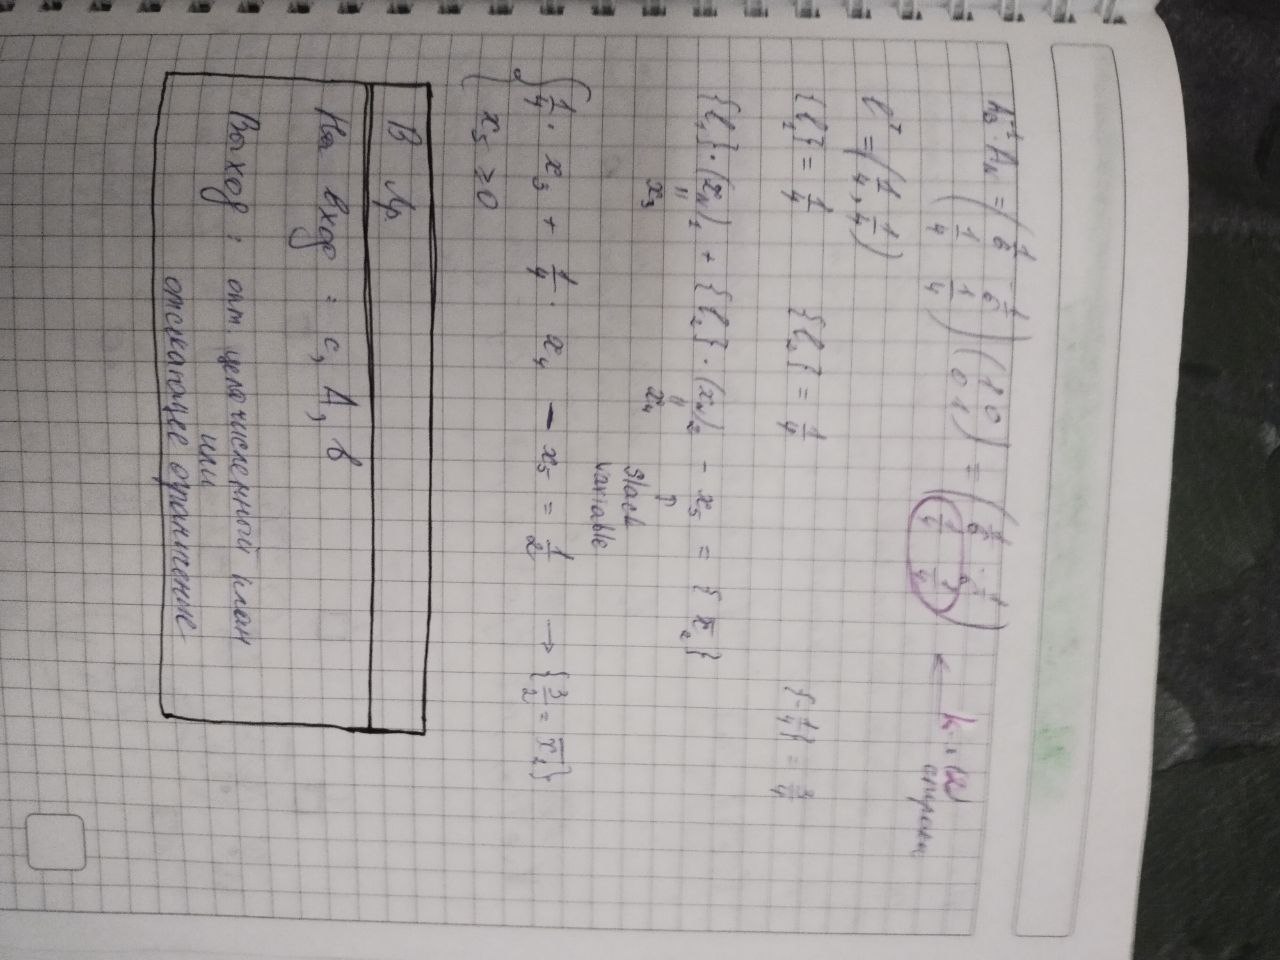 A_B^{-1} · A_N = (1/6 -1/6; 1/4 1/4) (1 0; 0 1) = (1/6 -1/6; 1/4 1/4) ← k (2)
строка
l^T = (1/4, 1/4)
{l_1} = 1/4 {l_2} = 1/4 {-1/4} = 3/4
{l_1} · (x_N)_1 + {l_2} · (x_N)_2 - x_5 = { x̄_2 }
= x_3 = x_4 ↑
Slack
variable
{ 1/4 · x_3 + 1/4 · x_4 - x_5 = 1/2 → {3/2 = x̄_2}
x_5 ≥ 0
В Лр.
На вход : c, A, b
Выход : опт. целочисленный план
или
отсекающее ограничение